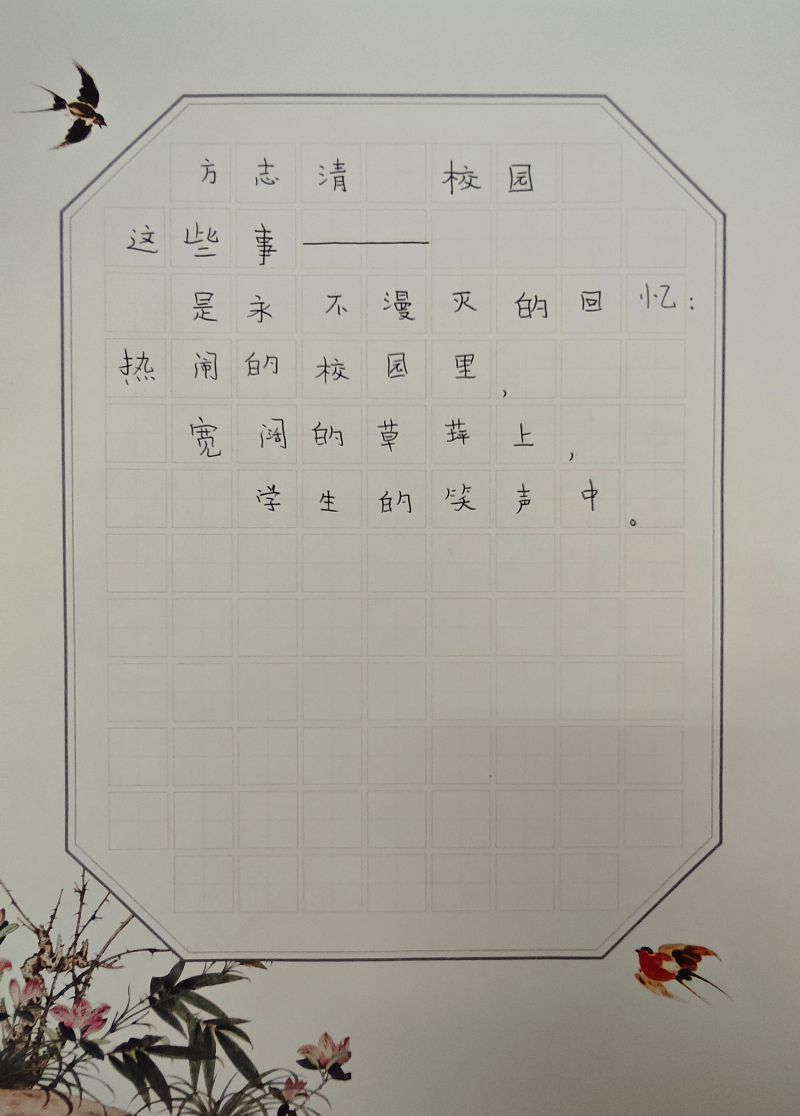 方志清 校园
这些事——
是永不漫灭的回忆:
热闹的校园里,
宽阔的草萍上,
学生的笑声中。